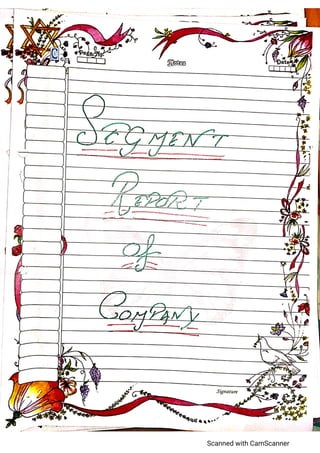 Page No.
Notes
Date
SEGMENT
REPORT
of
COMPANY
Signature
Scanned with CamScanner